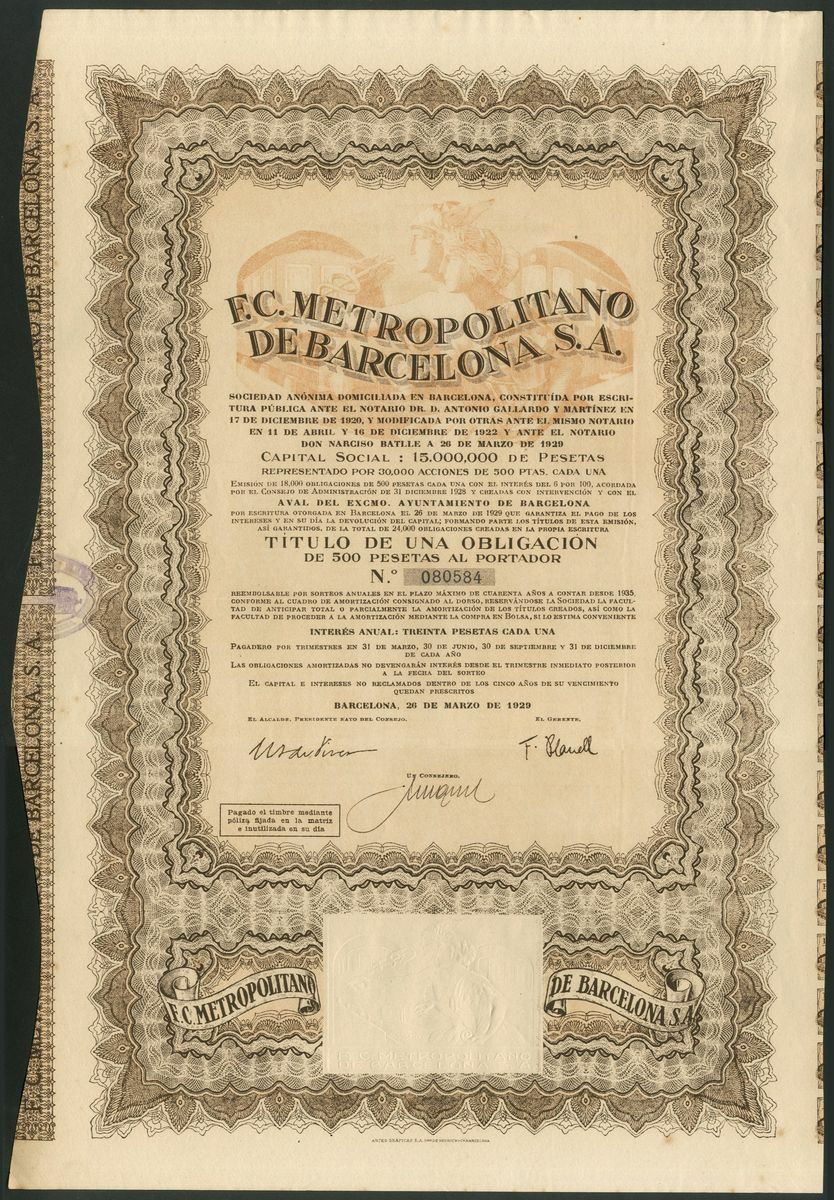 F.C. METROPOLITANO
DE BARCELONA S.A.
SOCIEDAD ANÓNIMA DOMICILIADA EN BARCELONA, CONSTITUÍDA POR ESCRI-
TURA PÚBLICA ANTE EL NOTARIO DR. D. ANTONIO GALLARDO Y MARTÍNEZ EN
17 DE DICIEMBRE DE 1920, Y MODIFICADA POR OTRAS ANTE EL MISMO NOTARIO
EN 11 DE ABRIL Y 16 DE DICIEMBRE DE 1922 Y ANTE EL NOTARIO
DON NARCISO BATLLE A 26 DE MARZO DE 1929
CAPITAL SOCIAL : 15.000,000 DE PESETAS
REPRESENTADO POR 30,000 ACCIONES DE 500 PTAS. CADA UNA
EMISIÓN DE 18,000 OBLIGACIONES DE 500 PESETAS CADA UNA CON EL INTERÉS DEL 6 POR 100, ACORDADA
POR EL CONSEJO DE ADMINISTRACIÓN DE 31 DICIEMBRE 1928 Y CREADAS CON INTERVENCIÓN Y CON EL
AVAL DEL EXCMO. AYUNTAMIENTO DE BARCELONA
POR ESCRITURA OTORGADA EN BARCELONA EL 26 DE MARZO DE 1929 QUE GARANTIZA EL PAGO DE LOS
INTERESES Y EN SU DÍA LA DEVOLUCIÓN DEL CAPITAL; FORMANDO PARTE LOS TÍTULOS DE ESTA EMISIÓN,
ASÍ GARANTIDOS, DE LA TOTAL DE 24,000 OBLIGACIONES CREADAS EN LA PROPIA ESCRITURA
TÍTULO DE UNA OBLIGACIÓN
DE 500 PESETAS AL PORTADOR
N.º 080584
REEMBOLSABLE POR SORTEOS ANUALES EN EL PLAZO MÁXIMO DE CUARENTA AÑOS A CONTAR DESDE 1935,
CONFORME AL CUADRO DE AMORTIZACIÓN CONSIGNADO AL DORSO, RESERVÁNDOSE LA SOCIEDAD LA FACUL-
TAD DE ANTICIPAR TOTAL O PARCIALMENTE LA AMORTIZACIÓN DE LOS TÍTULOS CREADOS, ASÍ COMO LA
FACULTAD DE PROCEDER A LA AMORTIZACIÓN MEDIANTE LA COMPRA EN BOLSA, SI LO ESTIMA CONVENIENTE
INTERÉS ANUAL: TREINTA PESETAS CADA UNA
PAGADERO POR TRIMESTRES EN 31 DE MARZO, 30 DE JUNIO, 30 DE SEPTIEMBRE Y 31 DE DICIEMBRE
DE CADA AÑO
LAS OBLIGACIONES AMORTIZADAS NO DEVENGARÁN INTERÉS DESDE EL TRIMESTRE INMEDIATO POSTERIOR
A LA FECHA DEL SORTEO
EL CAPITAL E INTERESES NO RECLAMADOS DENTRO DE LOS CINCO AÑOS DE SU VENCIMIENTO
QUEDAN PRESCRITOS
BARCELONA, 26 DE MARZO DE 1929
EL ALCALDE, PRESIDENTE NATO DEL CONSEJO.
EL GERENTE.
UN CONSEJERO.
Pagado el timbre mediante
póliza fijada en la matriz
e inutilizada en su día
F.C. METROPOLITANO
DE BARCELONA S.A.
F. C. METROPOLITANO
DE BARCELONA, S. A.